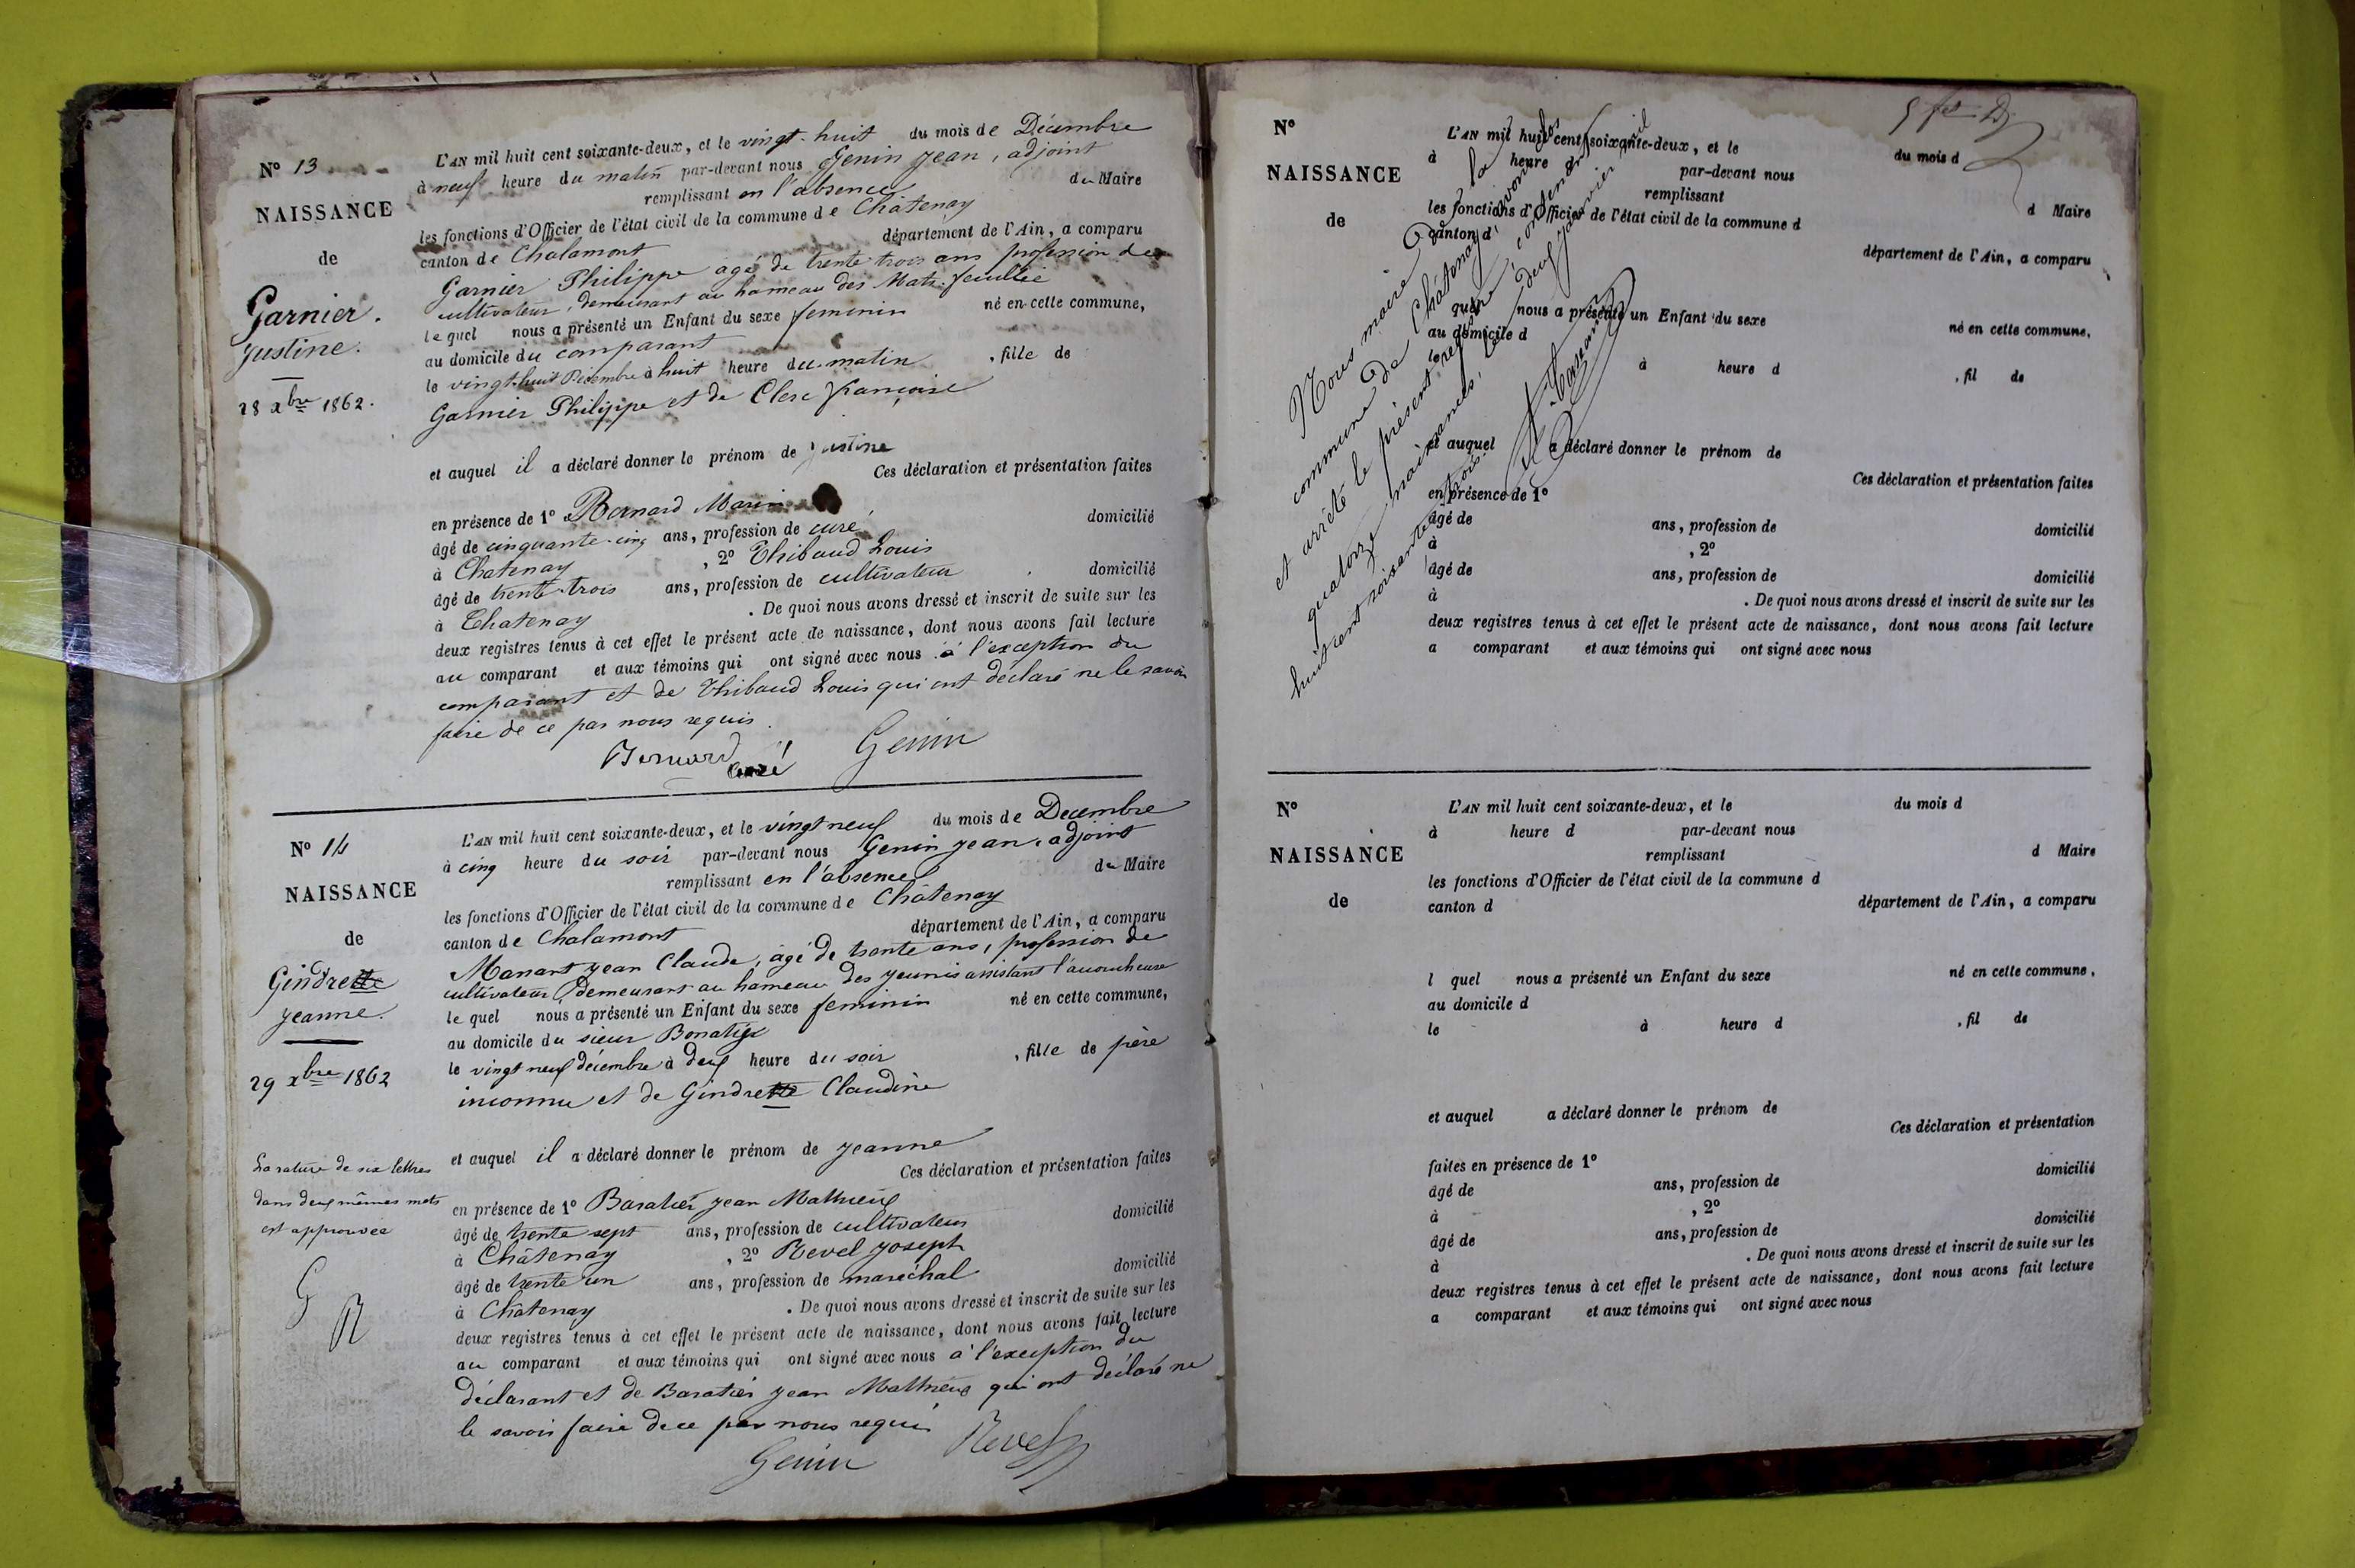 N° 13
NAISSANCE
de
Garnier.
Justine.
28 Xbre 1862.
L'AN mil huit cent soixante-deux, et le vingt-huit du mois de Décembre
à neuf heure du matin par-devant nous Genin Jean, adjoint
remplissant en l'absence du Maire
les fonctions d'Officier de l'état civil de la commune de Châtenay
canton de Chalamont département de l'Ain, a comparu
Garnier Philippe agé de trente trois ans profession de
cultivateur, demeurant au hameau des
le quel nous a présenté un Enfant du sexe feminin né en cette commune,
au domicile du comparant
le vingt-huit Décembre à huit heure du matin , fille de
Garnier Philippe et de Clerc Françoise
et auquel il a déclaré donner le prénom de Justine
Ces déclaration et présentation faites
en présence de 1° Bernard Marin
âgé de cinquante-cinq ans, profession de curé domicilié
à Chatenay , 2° Thibaud Louis
âgé de trente-trois ans, profession de cultivateur domicilié
à Chatenay . De quoi nous avons dressé et inscrit de suite sur les
deux registres tenus à cet effet le présent acte de naissance, dont nous avons fait lecture
au comparant et aux témoins qui ont signé avec nous à l'exception du
comparant et de Thibaud Louis qui ont déclaré ne le savoir
faire de ce par nous requis.
Bernard Genin
Curé
N° 14
NAISSANCE
de
Gindrette
Jeanne.
29 Xbre 1862
La rature de six lettres
dans deux mêmes mots
est approuvée
G R
L'AN mil huit cent soixante-deux, et le vingt neuf du mois de Decembre
à cinq heure du soir par-devant nous Genin Jean, adjoint
remplissant en l'absence du Maire
les fonctions d'Officier de l'état civil de la commune de Châtenay
canton de Chalamont département de l'Ain, a comparu
Manant Jean Claude, âgé de trente ans, profession de
cultivateur, demeurant au hameau des assistant l'accoucheuse
le quel nous a présenté un Enfant du sexe feminin né en cette commune,
au domicile du sieur
le vingt neuf décembre à deux heure du soir , fille de père
inconnu et de Gindrette Claudine
et auquel il a déclaré donner le prénom de Jeanne
Ces déclaration et présentation faites
en présence de 1° Baratier Jean Mathieu
âgé de trente sept ans, profession de cultivateur domicilié
à Châtenay , 2° Revel Joseph
âgé de trente un ans, profession de maréchal domicilié
à Châtenay . De quoi nous avons dressé et inscrit de suite sur les
deux registres tenus à cet effet le présent acte de naissance, dont nous avons fait lecture
au comparant et aux témoins qui ont signé avec nous à l'exception du
déclarant et de Baratier Jean Mathieu qui ont déclaré ne
le savoir faire de ce par nous requis
Genin Revel
N°
NAISSANCE
de
L'AN mil huit cent soixante-deux, et le du mois d
à heure d par-devant nous
remplissant d Maire
les fonctions d'Officier de l'état civil de la commune d
canton d département de l'Ain, a comparu
quel nous a présenté un Enfant du sexe né en cette commune,
au domicile d
le à heure d , fil de
et auquel a déclaré donner le prénom de
Ces déclaration et présentation faites
en présence de 1°
âgé de ans, profession de domicilié
à , 2°
âgé de ans, profession de domicilié
à . De quoi nous avons dressé et inscrit de suite sur les
deux registres tenus à cet effet le présent acte de naissance, dont nous avons fait lecture
a comparant et aux témoins qui ont signé avec nous
Nous maire de la
commune de Châtenay, avons clos
et arrêté le présent registre, contenant
quatorze naissances, le deux janvier mil
huit cent soixante trois.
N°
NAISSANCE
de
L'AN mil huit cent soixante-deux, et le du mois d
à heure d par-devant nous
remplissant d Maire
les fonctions d'Officier de l'état civil de la commune d
canton d département de l'Ain, a comparu
l quel nous a présenté un Enfant du sexe né en cette commune,
au domicile d
le à heure d , fil de
et auquel a déclaré donner le prénom de
Ces déclaration et présentation
faites en présence de 1°
âgé de ans, profession de domicilié
à , 2°
âgé de ans, profession de domicilié
à . De quoi nous avons dressé et inscrit de suite sur les
deux registres tenus à cet effet le présent acte de naissance, dont nous avons fait lecture
a comparant et aux témoins qui ont signé avec nous